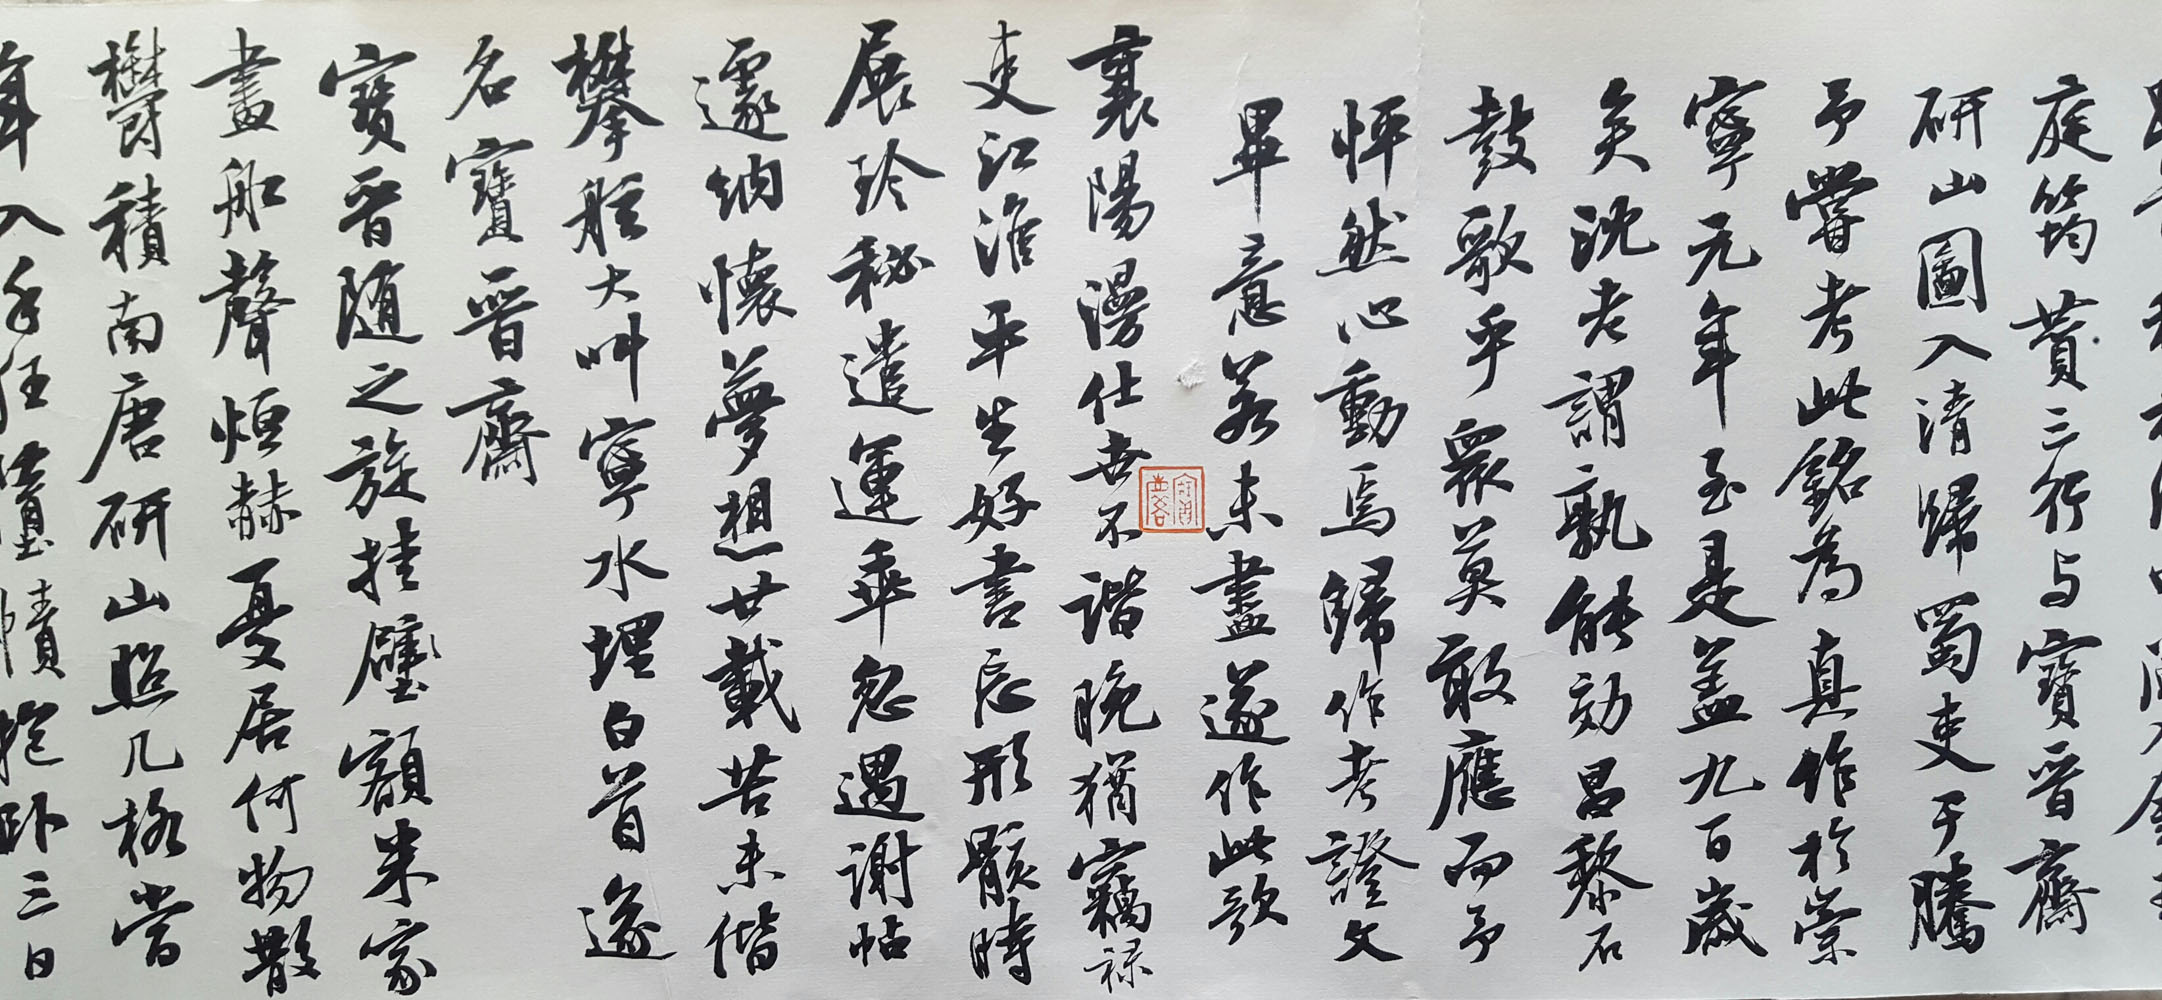 庭筠黃三行与寶晋齋
研山圖入清歸蜀吏于騰
予嘗考此銘為真作於崇
寧元年至是盖九百歲
矣沈老謂孰能効昌黎石
鼓歌乎眾莫敢應而予
怦然心動焉歸作考證文
畢意若未盡遂作此歌
襄陽漫仕世不諧晚猶竊祿
吏江淮平生好書忘形骸時
展珍秘遣運乖忽遇謝帖
邃納懷夢想廿載苦未偕
攀舷大叫寧水埋白首遂
名寶晋齋
寶晋随之旋挂壁額米家
畫船聲烜赫憂居何物散
鬱積南唐研山照几格嘗
年入手狂墮幘抱卧三日